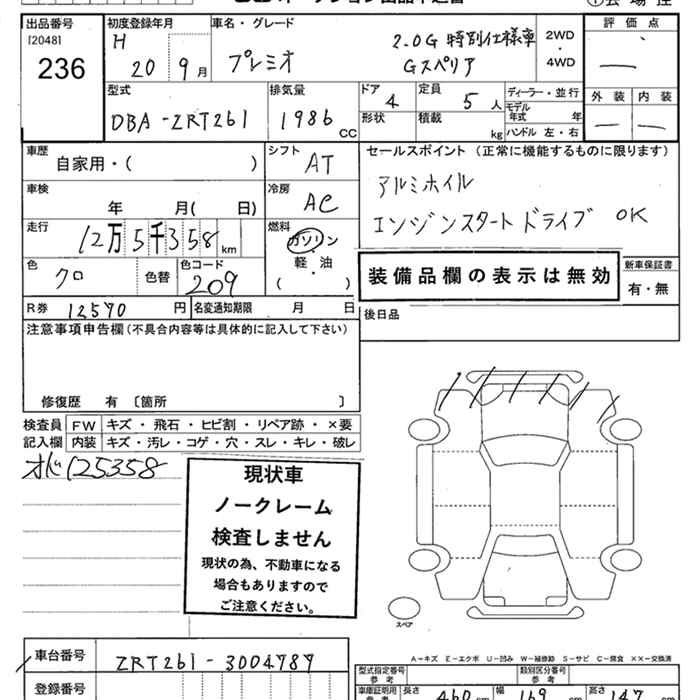 出品番号 初度登録年月 車名・グレード 評価点
[2048] H 2.0G 特別仕様車 2WD
236 20 9月 プレミオ Gスペリア ・ 4WD
型式 排気量 ドア 定員 ディーラー・並行 外装 内装
DBA-ZRT261 1986 CC 4 5人 モデル年式 年
形状 積載 kg ハンドル 左・右
車歴 シフト セールスポイント (正常に機能するものに限ります)
自家用・( ) AT アルミホイル
車検 冷房
年 月( 日) AC エンジンスタート ドライブ OK
走行 燃料
12万5千358km ガソリン
軽・油
( )
色 色替 色コード
クロ 209
装備品欄の表示は無効
新車保証書
有・無
R券 12570 円 名変通知期限 月 日 後日品
注意事項申告欄(不具合内容等は具体的に記入して下さい)
修復歴 有 〔箇所 〕
検査員 FW キズ・飛石・ヒビ割・リペア跡・×要
記入欄 内装 キズ・汚レ・コゲ・穴・スレ・キレ・破レ
オド125358
現状車
ノークレーム
検査しません
現状の為、不動車になる
場合もありますので
ご注意ください。
スペア
車台番号 ZRT261-3004787
登録番号
A-キズ E-エクボ U-凹み W-補修跡 S-サビ C-腐食 ××-交換済
型式指定番号 参考 類別区分番号 参考
車庫証明用 参考 長さ 460 cm 幅 169 cm 高さ 147 cm